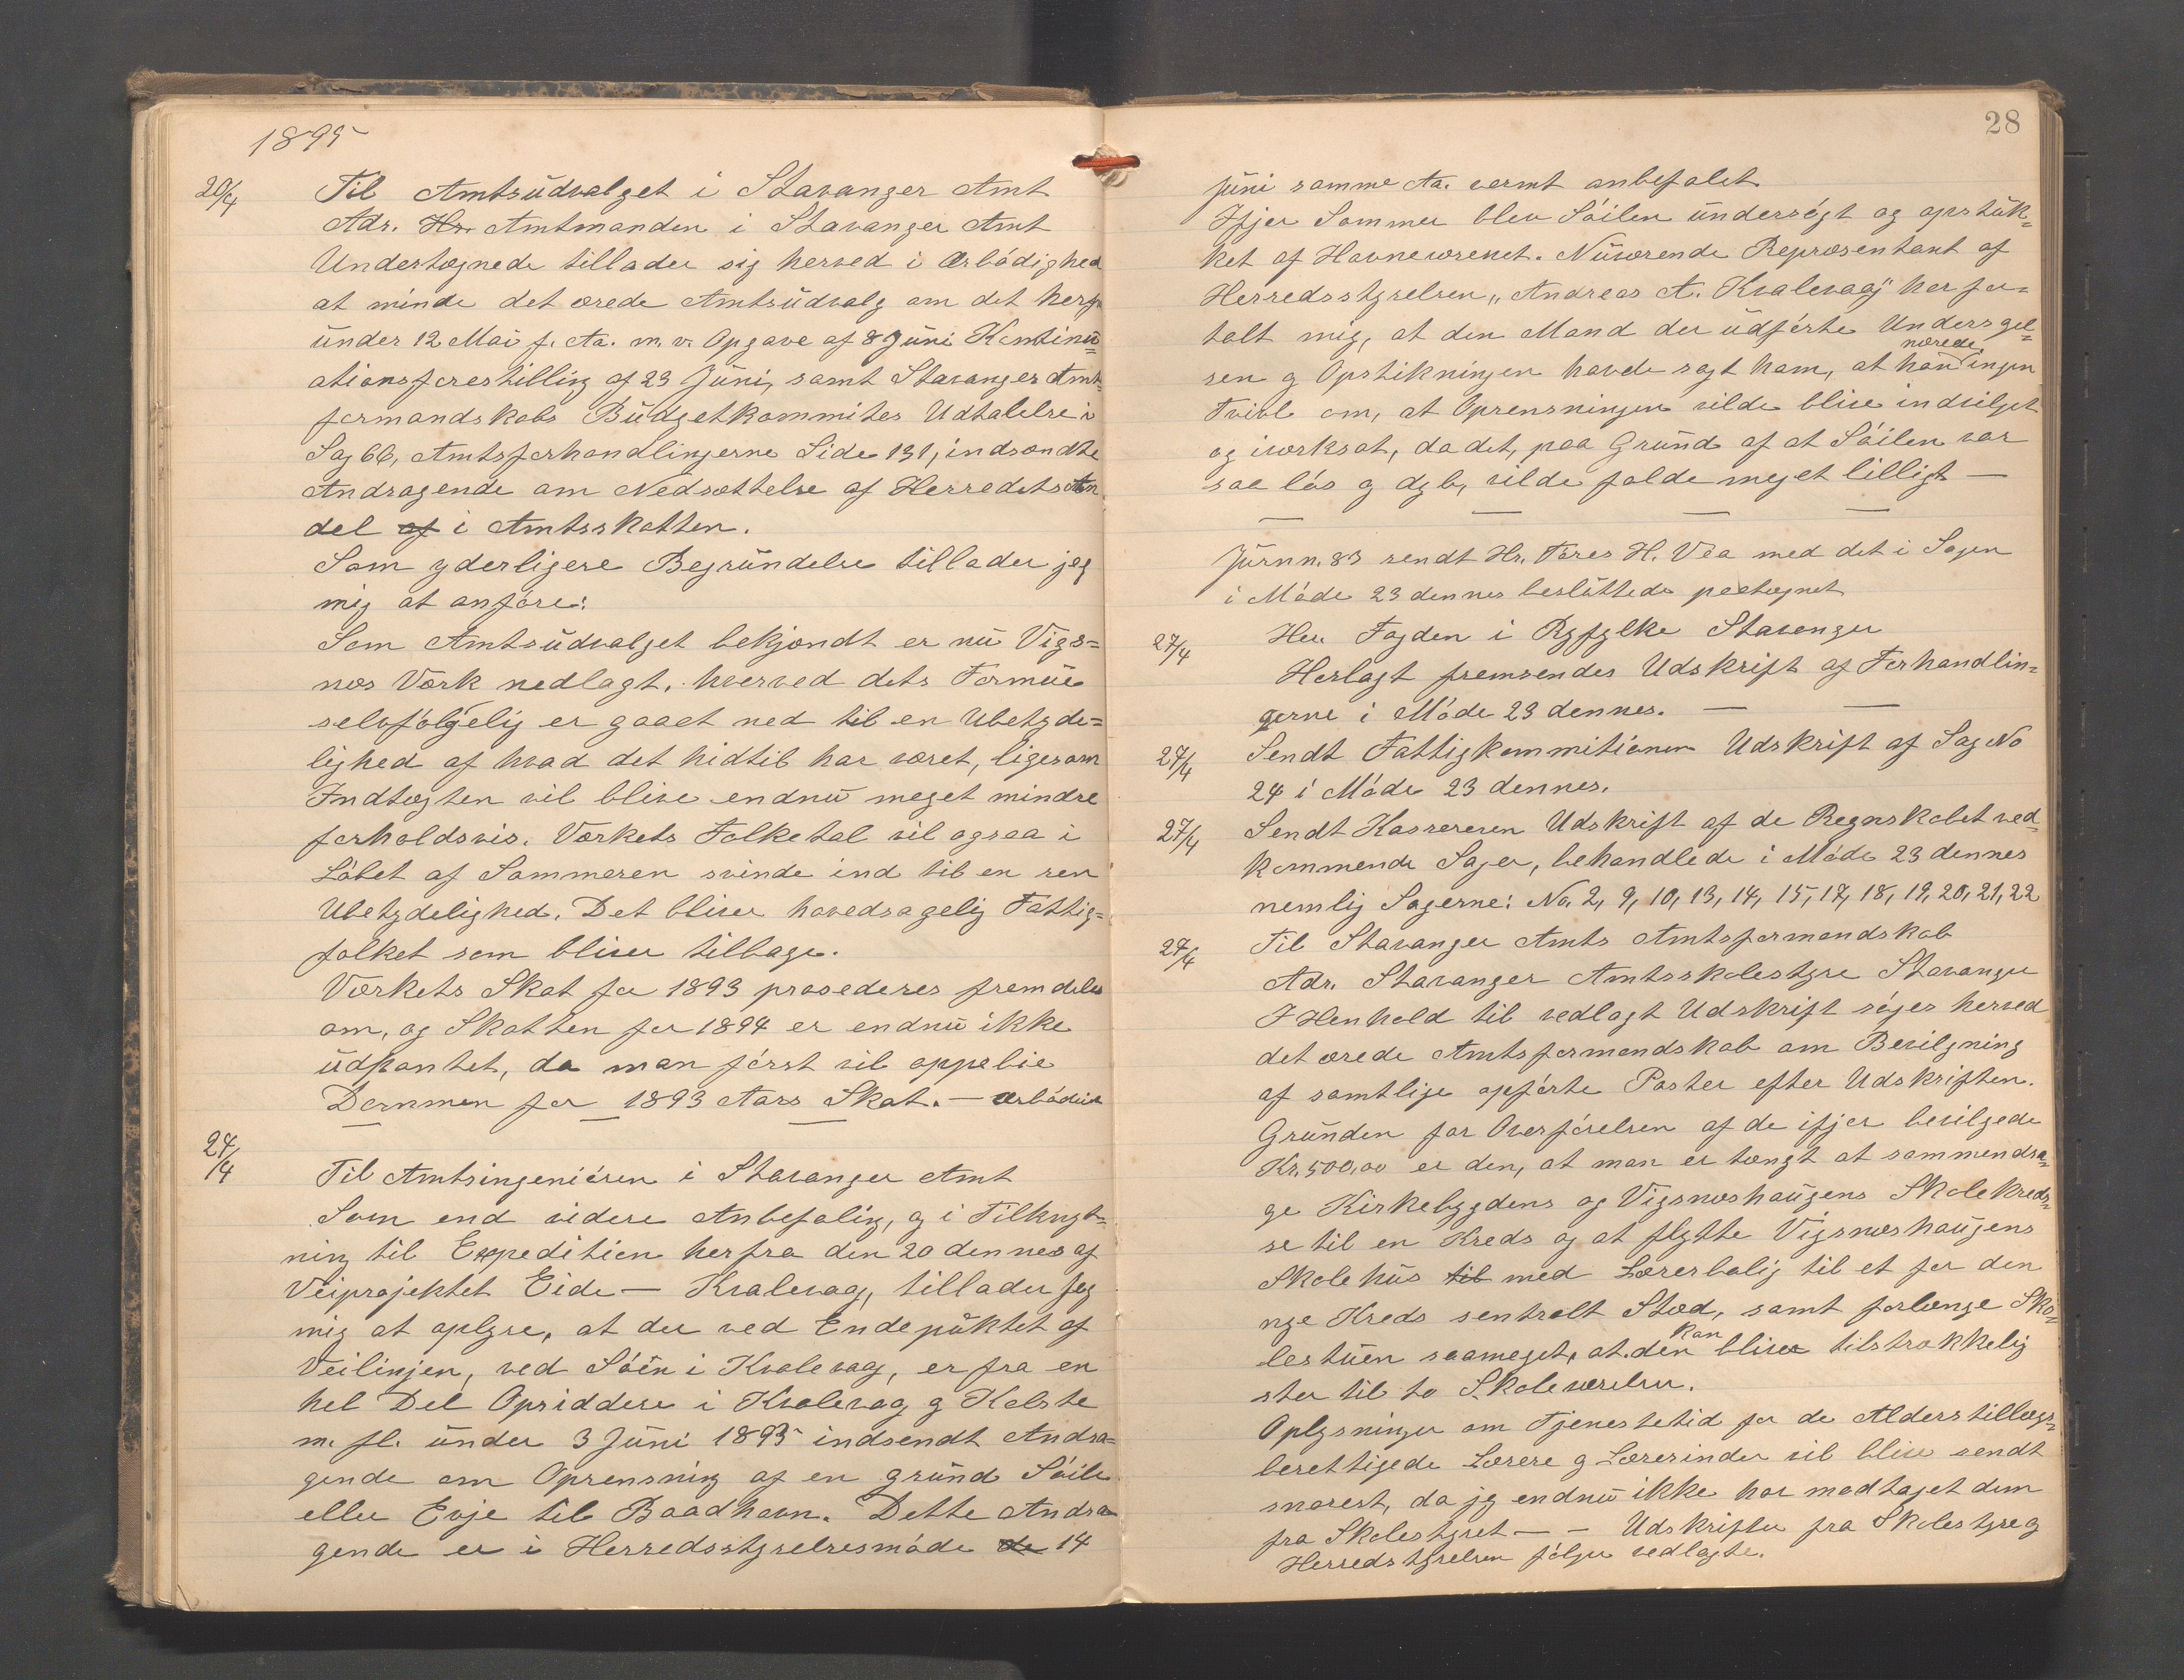 1895
20/4 Til Amtsudvalget i Stavanger Amt
Adr. Hr. Amtmanden i Stavanger Amt
Undertegnede tillader sig herved i Ærbødighed
at minde det ærede Amtsudvalg om det herfra
under 12 Mai f. Aa. m. v. Opgave af 8 Juni Kontinu=
ationsforestilling af 23 Juni, samt Stavanger Amt=
formandskabs Budgetkommites Udtalelse i
Sag 66, Amtsforhandlingerne Side 131, indsendte
Andragende om Nedsættelse af Herredets An
del af i Amtsskatten.
Som yderligere Begrundelse tillader jeg
mig at anføre:
Som Amtsudvalget bekjendt er nu Vigs=
nes Værk nedlagt, hverved dets Formue
selvfølgelig er gaaet ned til en Ubetyde=
lighed af hvad det hidtil har været, ligesom
Indtægten vil blive endnu meget mindre
forholdsvis. Værkets Folketal vil ogsaa i
Løbet af Sommeren svinde ind til en ren
Ubetydelighed. Det bliver hovedsagelig Fattig=
folket som bliver tilbage.
Værkets Skat for 1893 prosederes fremdeles
om, og Skatten for 1894 er endnu ikke
udpantet, da man først vil oppebie
Dommen for 1893 Aars Skat. — Ærbødigst
24/4
Til Amtsingeniøren i Stavanger Amt
Som end videre Anbefaling, og i Tilknyt=
ning til Expeditien herfra den 20 dennes af
Veiprojektet Eide — Kvalevag, tillader jeg
mig at oplyse, at der ved Endepuktet af
Veilinjen, ved Søen i Kvalevag, er fra en
hel Del Opsiddere i Kvalevag og Kolste
m. fl. under 3 Juni 1893 indsendt Andra=
gende om Oprensning af en grund Søile
eller Evje til Baadhavn. Dette Andra
gende er i Herredsstyrelsesmøde de 14
28
juni samme Aa. varmt anbefalet.
Ifjer Sommer blev Søilen undersøgt og opstuk=
ket af Havnevæsenet. Nuværende Repræsentant af
Herredsstyrelsen „Andreas A. Kvalevaag" har for=
talt mig, at den Mand der udførte Undersøgel=
sen og Opstikningen havde sagt ham, at han nærede ingen
Tvivl om, at Oprensningen vilde blive indvilget
og iværksat, da det, paa Grund af at Søilen var
saa løs og dyb, vilde falde meget billigt —
Jurnn. 83 sendt Hr. Tøres H. Vea med det i Sagen
i Møde 23 dennes besluttede paategnet
27/4 Herr Fogden i Ryfylke Stavanger
Herlagt fremsendes Udskrift af Forhandlin=
gerne i Møde 23 dennes. — —
27/4 Sendt Fattigkommitionen Udskrift af Sag No
24 i Møde 23 dennes.
27/4 Sendt Kassereren Udskrift af de Regnskabet ved=
kommende Sager, behandlede i Møde 23 dennes
nemlig Sagerne: No. 2, 9, 10, 13, 14, 15, 17, 18, 19, 20, 21, 22
27/4 Til Stavanger Amts Amtsformandskab
Adr. Stavanger Amtsskolestyre Stavanger
I Henhold til vedlagt Udskrift søges herved
det ærede Amtsformandskab om Bevilgning
af samtlige opførte Poster efter Udskriften.
Grunden for Overførelsen af de ifjer bevilgede
Kr. 500,00 er den, at man er tængt at sammendra=
ge Kirkebygdens og Vigsneshaugens Skolekreds=
se til en Kreds og at flytte Vigsneshaugens
Skolehus til med Lærerbolig til et for den
nye Kreds sentralt Sted, samt forlænge Sko=
lestuen saameget, at den kan bliver tilstrækkelig
stor til to Skoleværelser.
Oplysninger om Tjenestetid for de Alderstillægs=
berettigede Lærere og Lærerinder vil blive sendt
snarest, da jeg endnu ikke har modtaget dem
fra Skolestyret — — Udskrifter fra Skolestyre og
Herredstyrelsen følger vedlagte.